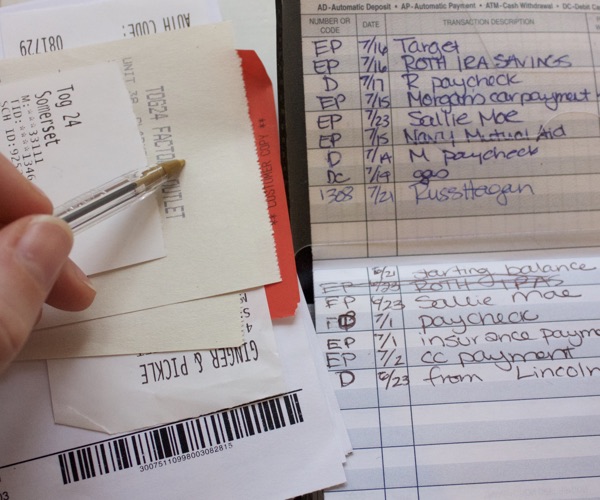 AUTH CODE:
081729
Tog 24
Somerset
M:***33111
TID:****1346
SCH ID:925
TOG24 FACTORY OUTLET
UNIT 38
** CUSTOMER COPY **
GINGER & PICKLE
30075110998003082815
AD-Automatic Deposit • AP-Automatic Payment • ATM-Cash Withdrawal • DC-Debit Ca
NUMBER OR CODE DATE TRANSACTION DESCRIPTION
EP 7/16 Target
EP 7/16 ROTH IRA SAVINGS
D 7/17 R paycheck
EP 7/15 Morgan's car payment
EP 7/23 Sallie Mae
EP 7/15 Navy Mutual Aid
D 7/19 M paycheck
DC 7/19 gas
1308 7/21 Russ Hagan
6/21 starting balance
EP 6/23 ROTH IRAS
EP 6/23 Sallie Mae
D 7/1 paycheck
EP 7/1 insurance payme
EP 7/2 cc payment
D 6/23 from Lincoln